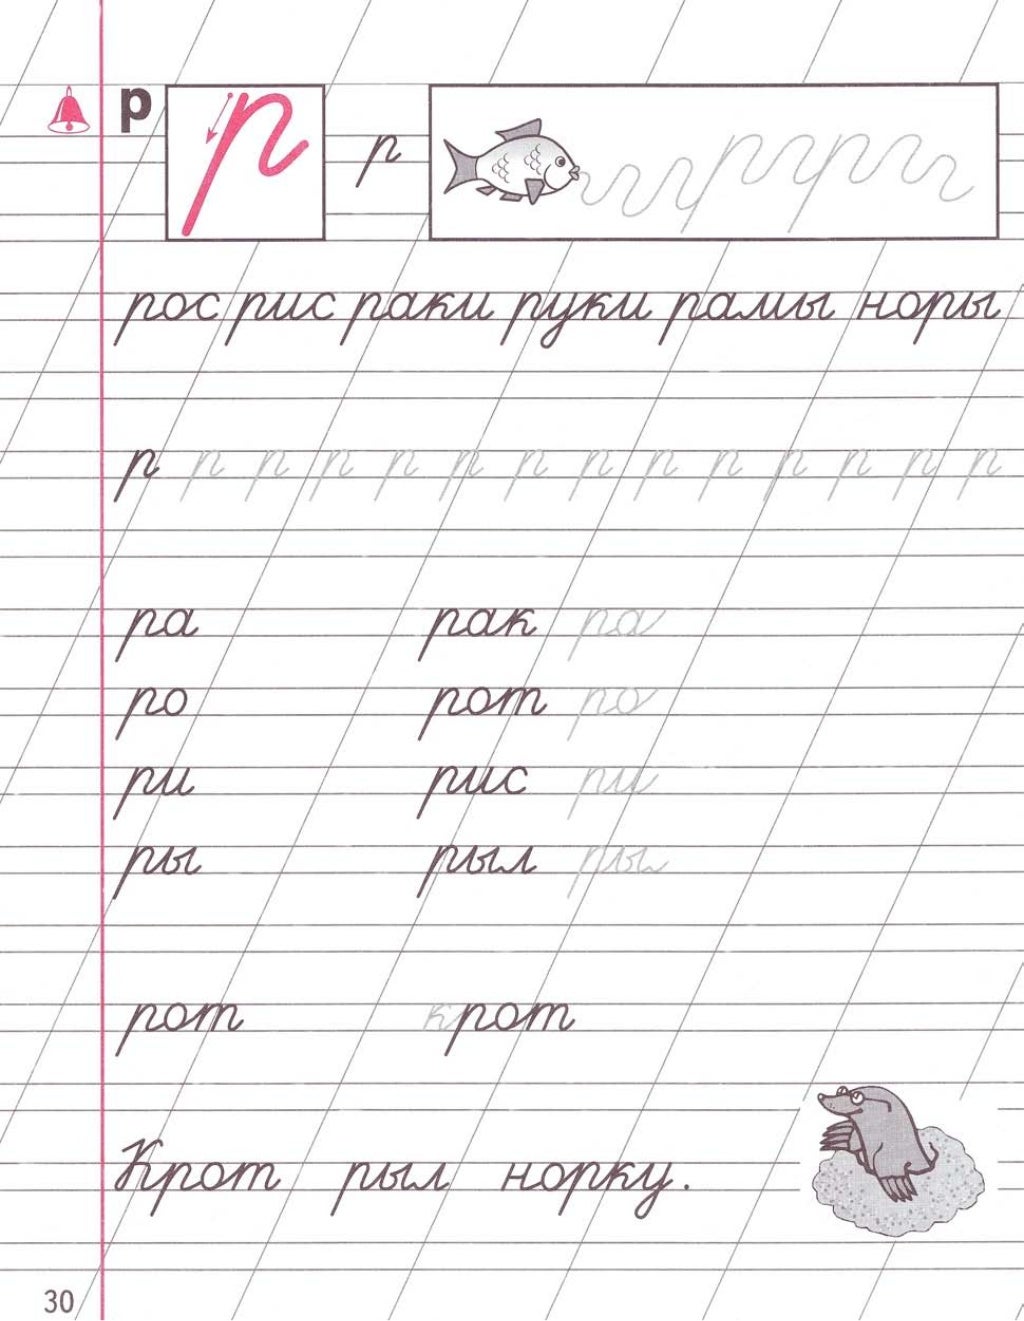 р р р
рос рис раки руки рамы норы
р р р р р р р р р р р р р р
ра рак ра
ро рот ро
ри рис ри
ры рыл ры
рот крот
Крот рыл норку.
30